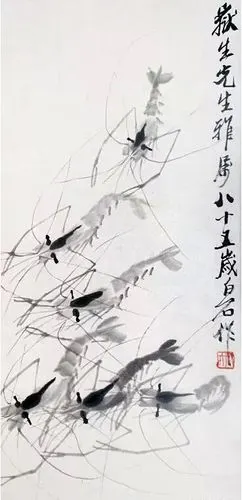 嶽生先生雅屬八十五歲白石作